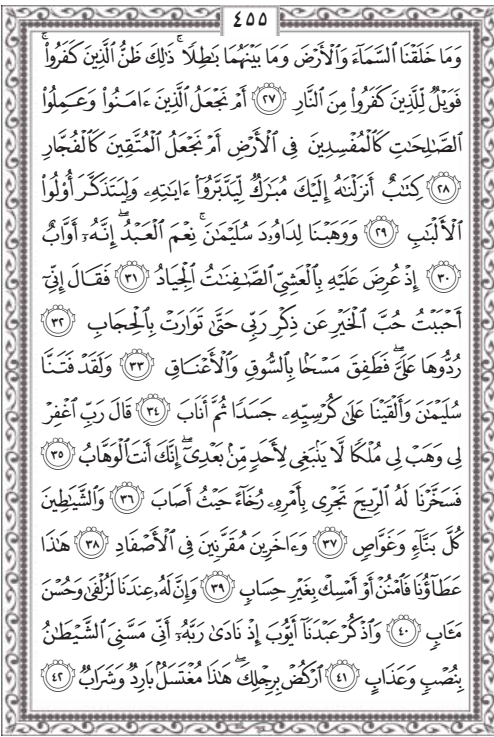 ٤٥٥
وَمَا خَلَقْنَا ٱلسَّمَآءَ وَٱلْأَرْضَ وَمَا بَيْنَهُمَا بَٰطِلًا ۚ ذَٰلِكَ ظَنُّ ٱلَّذِينَ كَفَرُوا۟ ۚ
فَوَيْلٌ لِّلَّذِينَ كَفَرُوا۟ مِنَ ٱلنَّارِ ٢٧ أَمْ نَجْعَلُ ٱلَّذِينَ ءَامَنُوا۟ وَعَمِلُوا۟
ٱلصَّٰلِحَٰتِ كَٱلْمُفْسِدِينَ فِى ٱلْأَرْضِ أَمْ نَجْعَلُ ٱلْمُتَّقِينَ كَٱلْفُجَّارِ
٢٨ كِتَٰبٌ أَنزَلْنَٰهُ إِلَيْكَ مُبَٰرَكٌ لِّيَدَّبَّرُوٓا۟ ءَايَٰتِهِۦ وَلِيَتَذَكَّرَ أُو۟لُوا۟
ٱلْأَلْبَٰبِ ٢٩ وَوَهَبْنَا لِدَاوُۥدَ سُلَيْمَٰنَ ۚ نِعْمَ ٱلْعَبْدُ ۖ إِنَّهُۥٓ أَوَّابٌ
٣٠ إِذْ عُرِضَ عَلَيْهِ بِٱلْعَشِىِّ ٱلصَّٰفِنَٰتُ ٱلْجِيَادُ ٣١ فَقَالَ إِنِّىٓ
أَحْبَبْتُ حُبَّ ٱلْخَيْرِ عَن ذِكْرِ رَبِّى حَتَّىٰ تَوَارَتْ بِٱلْحِجَابِ ٣٢
رُدُّوهَا عَلَىَّ ۖ فَطَفِقَ مَسْحًۢا بِٱلسُّوقِ وَٱلْأَعْنَاقِ ٣٣ وَلَقَدْ فَتَنَّا
سُلَيْمَٰنَ وَأَلْقَيْنَا عَلَىٰ كُرْسِيِّهِۦ جَسَدًا ثُمَّ أَنَابَ ٣٤ قَالَ رَبِّ ٱغْفِرْ
لِى وَهَبْ لِى مُلْكًا لَّا يَنۢبَغِى لِأَحَدٍ مِّنۢ بَعْدِىٓ ۖ إِنَّكَ أَنتَ ٱلْوَهَّابُ ٣٥
فَسَخَّرْنَا لَهُ ٱلرِّيحَ تَجْرِى بِأَمْرِهِۦ رُخَآءً حَيْثُ أَصَابَ ٣٦ وَٱلشَّيَٰطِينَ
كُلَّ بَنَّآءٍ وَغَوَّاصٍ ٣٧ وَءَاخَرِينَ مُقَرَّنِينَ فِى ٱلْأَصْفَادِ ٣٨ هَٰذَا
عَطَآؤُنَا فَٱمْنُنْ أَوْ أَمْسِكْ بِغَيْرِ حِسَابٍ ٣٩ وَإِنَّ لَهُۥ عِندَنَا لَزُلْفَىٰ وَحُسْنَ
مَـَٔابٍ ٤٠ وَٱذْكُرْ عَبْدَنَآ أَيُّوبَ إِذْ نَادَىٰ رَبَّهُۥٓ أَنِّى مَسَّنِىَ ٱلشَّيْطَٰنُ
بِنُصْبٍ وَعَذَابٍ ٤١ ٱرْكُضْ بِرِجْلِكَ ۖ هَٰذَا مُغْتَسَلٌۢ بَارِدٌ وَشَرَابٌ ٤٢